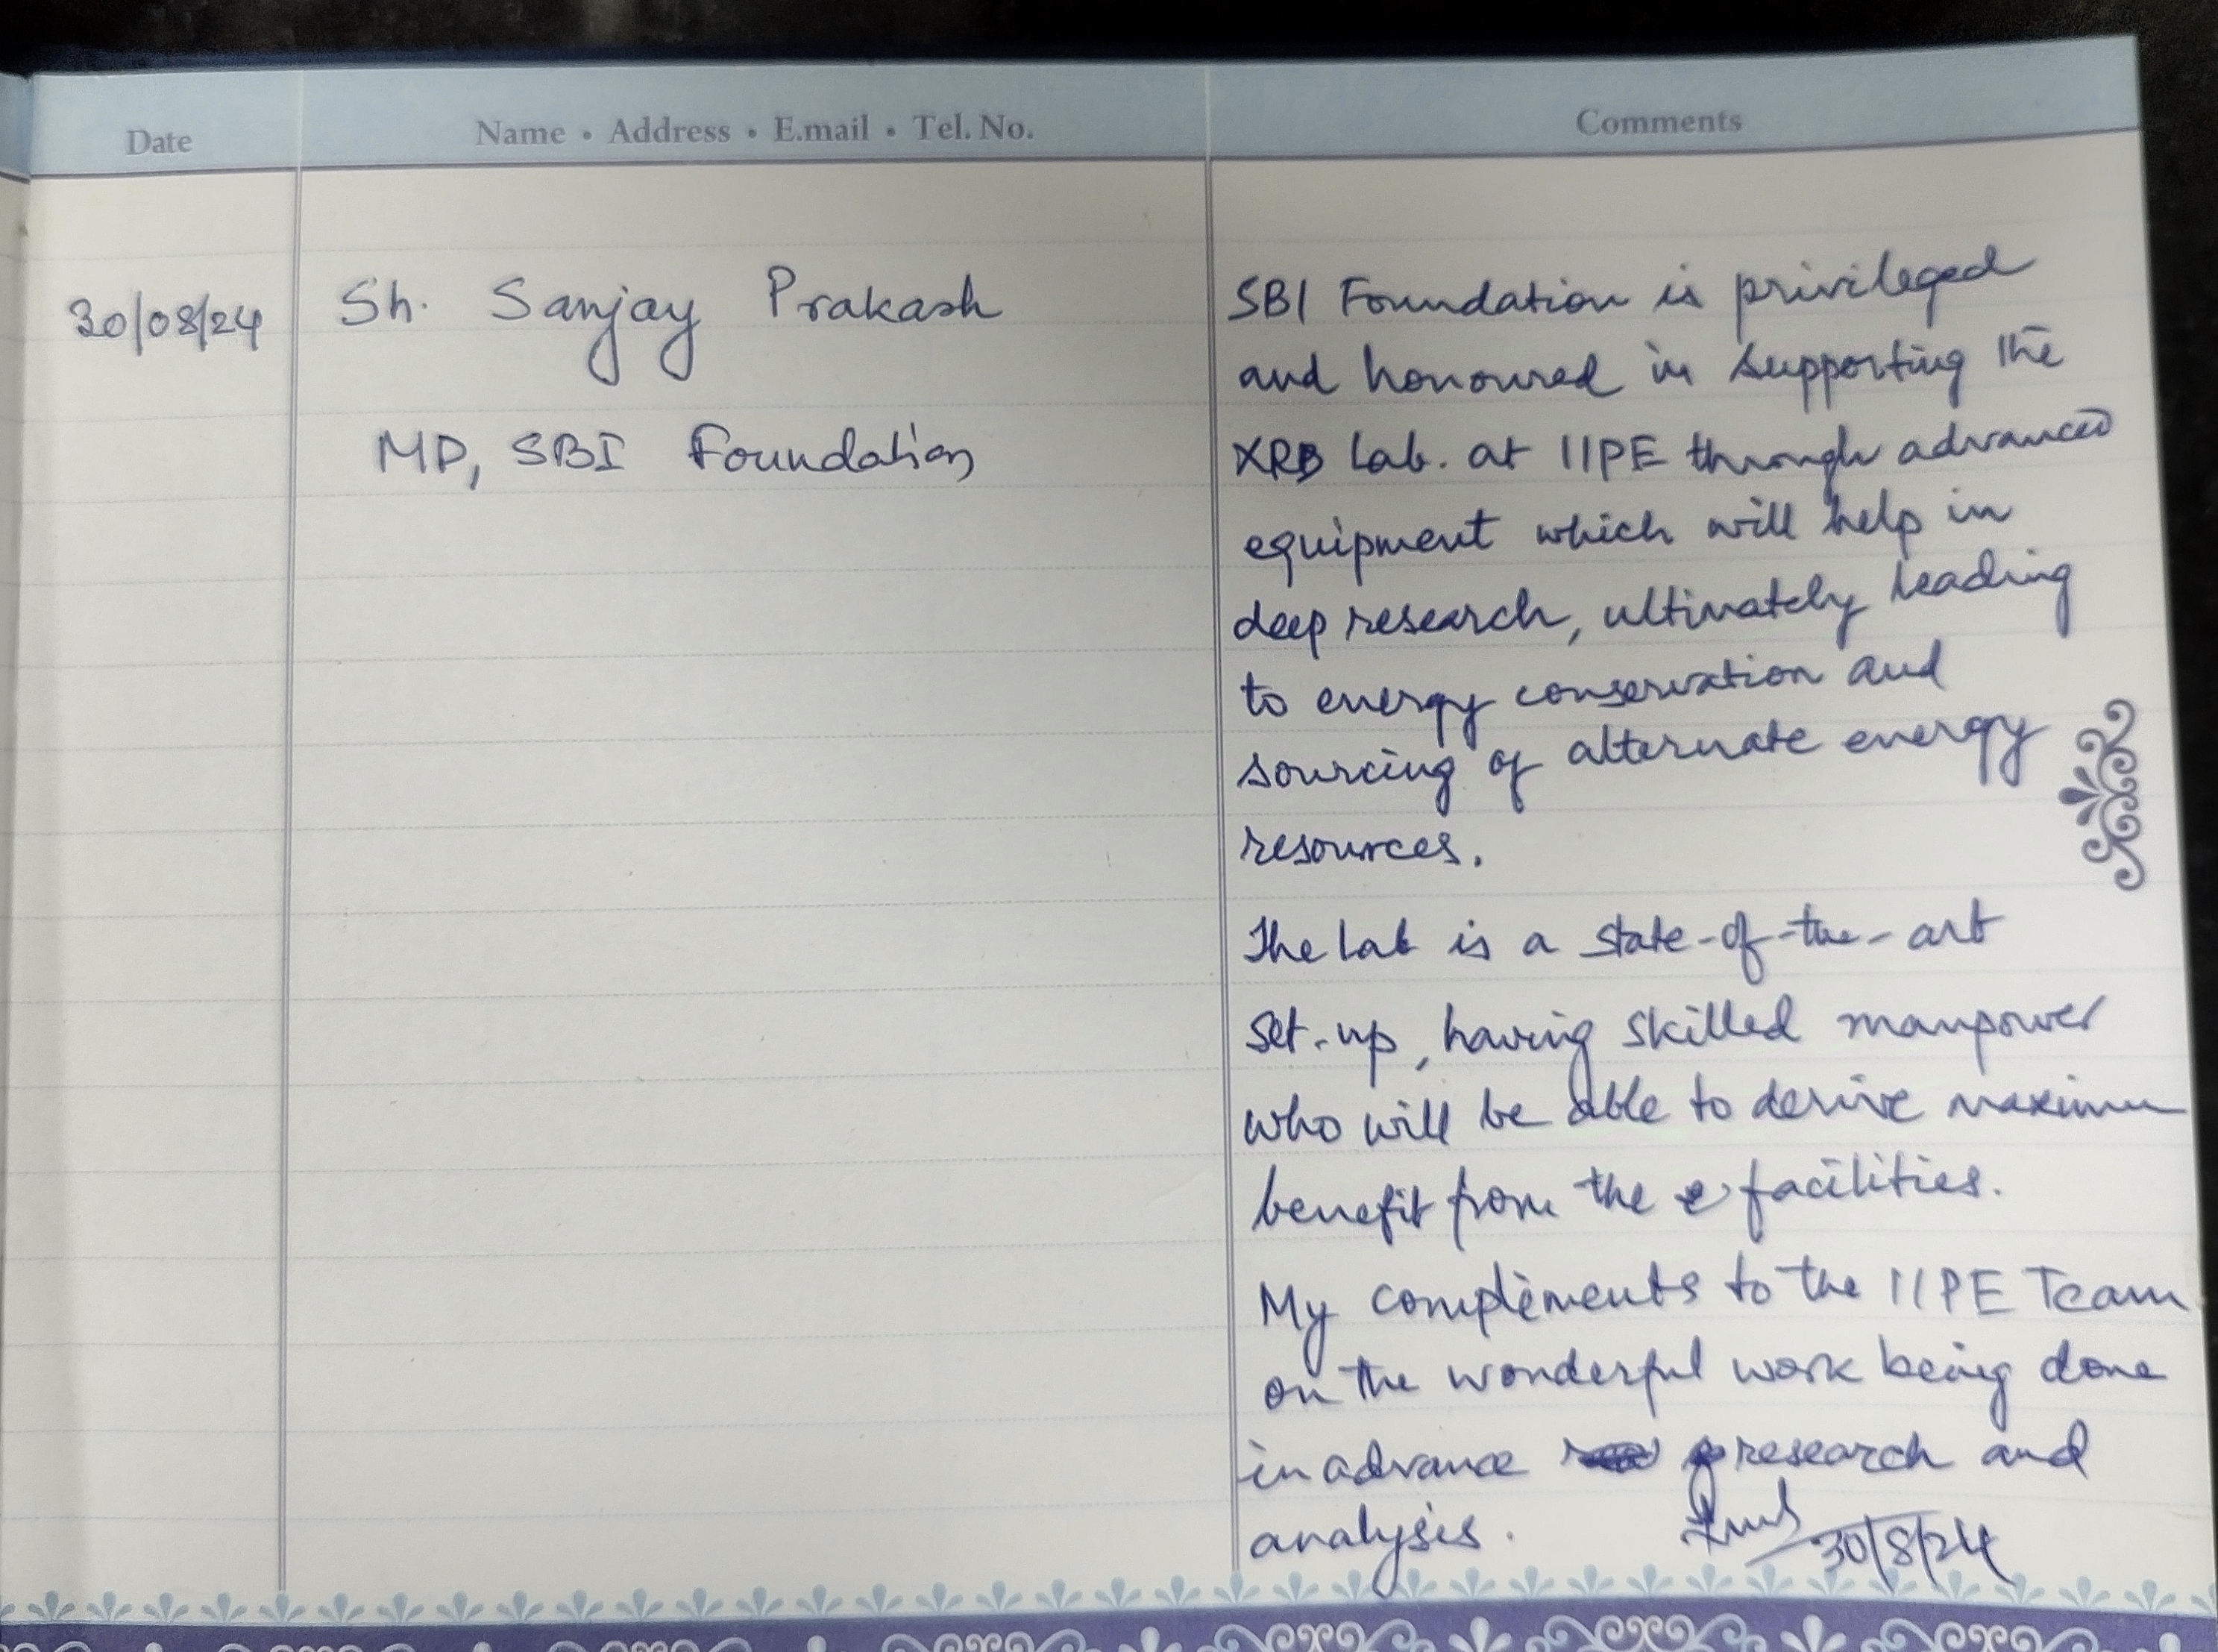 Date Name • Address • E.mail • Tel. No. Comments
30/08/24 Sh. Sanjay Prakash
MD, SBI Foundation
SBI Foundation is privileged
and honoured in supporting the
XRB Lab. at IIPE through advanced
equipment which will help in
deep research, ultimately leading
to energy conservation and
sourcing of alternate energy
resources.
The Lab is a state-of-the-art
set-up, having skilled manpower
who will be able to derive maximum
benefit from the facilities.
My compliments to the IIPE Team
on the wonderful work being done
in advance research and
analysis.
30/8/24